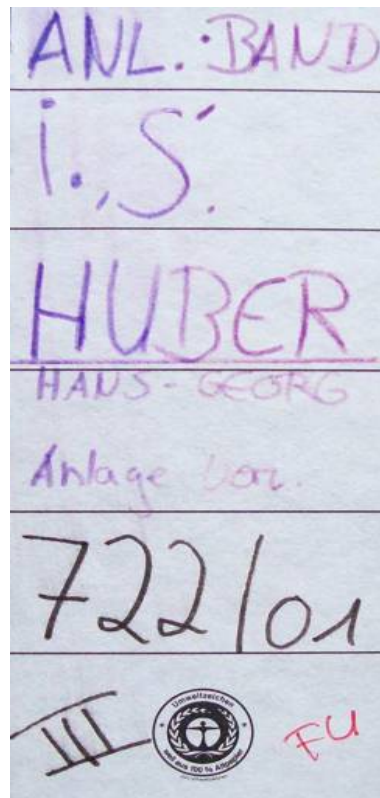 ANL.-BAND
i. S.
HUBER
HANS-GEORG
Anlage Vorz.
722/01
III
Umweltzeichen
weil aus 100 % Altpapier
FU